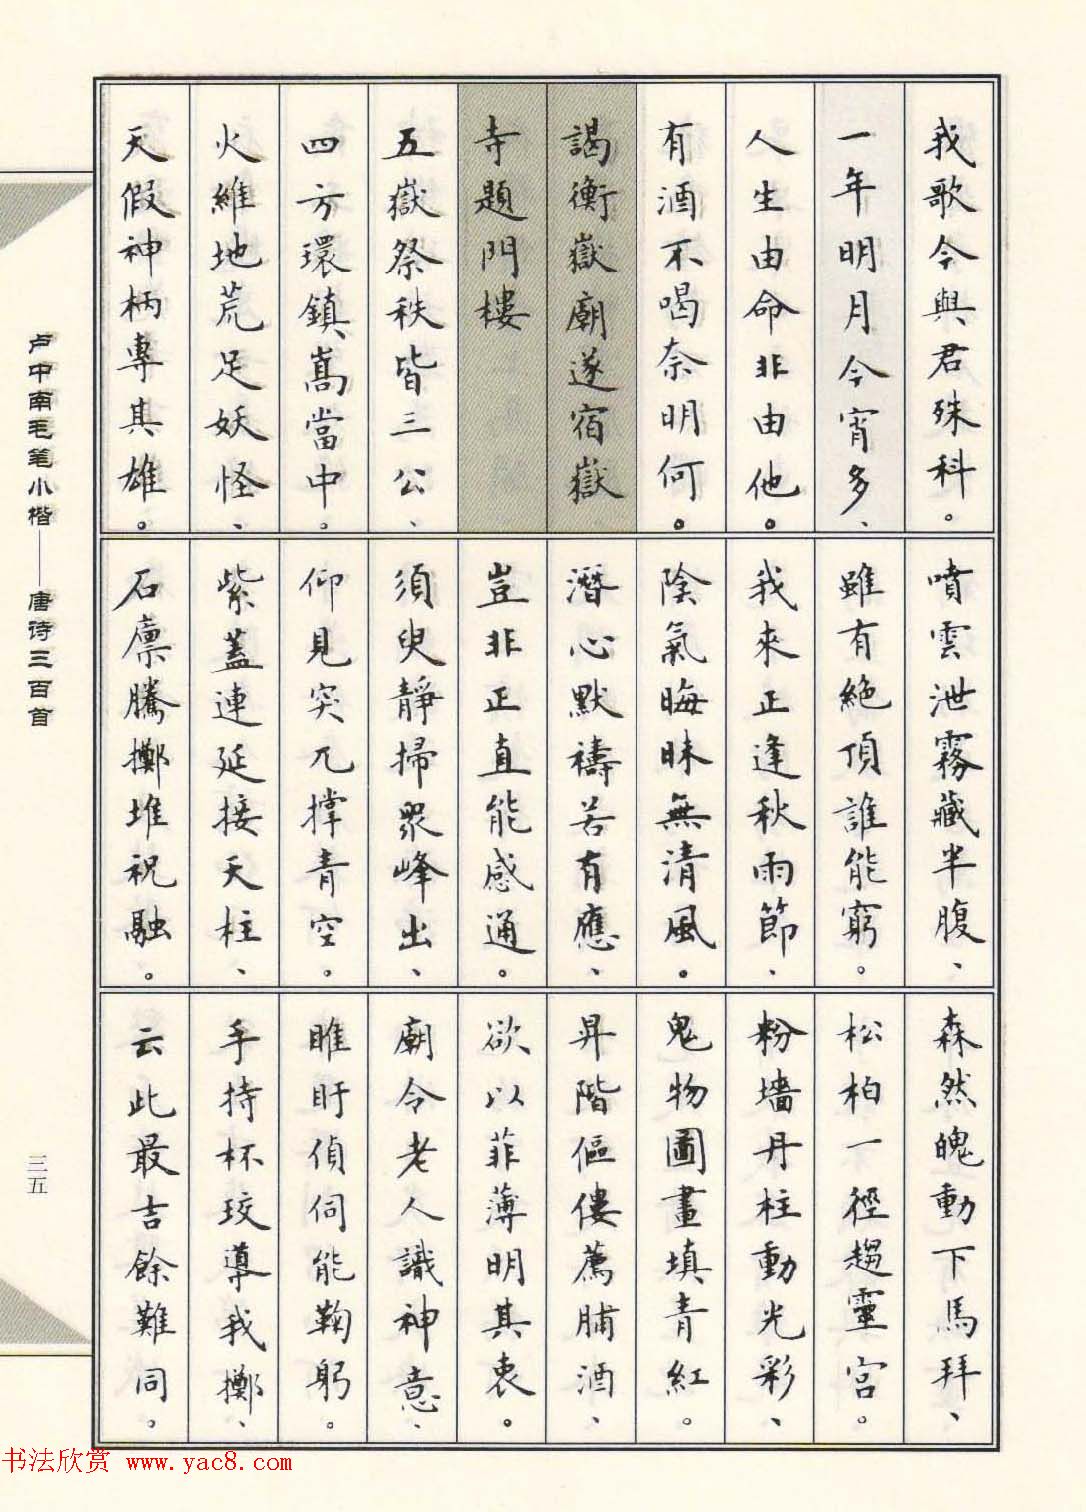 我歌今與君殊科。
一年明月今宵多、
人生由命非由他。
有酒不喝奈明何。
謁衡嶽廟遂宿嶽
寺題門樓
五嶽祭秩皆三公、
四方環鎮、嵩當中。
火維地荒足妖怪、
天假神柄專其雄。
噴雲泄霧藏半腹、
雖有絕頂誰能窮。
我來正逢秋雨節、
陰氣晦昧無清風。
潛心默禱若有應、
豈非正直能感通。
須臾靜掃衆峰出、
仰見突兀撑青空。
紫蓋連延接天柱、
石廪騰擲堆祝融。
森然魄動下馬拜、
松柏一徑趨靈宮。
粉墻丹柱動光彩、
鬼物圖畫填青紅。
昇階傴僂薦脯酒、
欲以菲薄明其衷。
廟令老人識神意、
睢盱偵伺能鞠躬。
手持杯珓導我擲、
云此最吉餘難同。
卢中南毛笔小楷——唐诗三百首
三五
书法欣赏 www.yac8.com